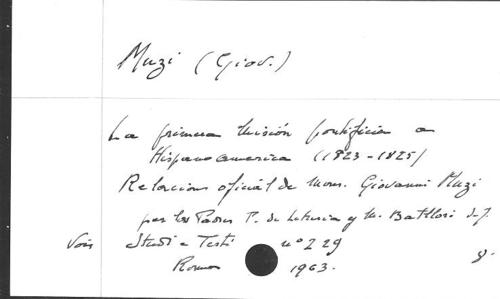 Muzi (Giov.)
La primera Misión pontificia a
Hispanoamerica (1823-1825)
Relacion oficial de Mons. Giovanni Muzi
por los Padres P. de Leturia y M. Batllori S.J.
Vois Studi e Testi n° 229
Roma 1963. 8.